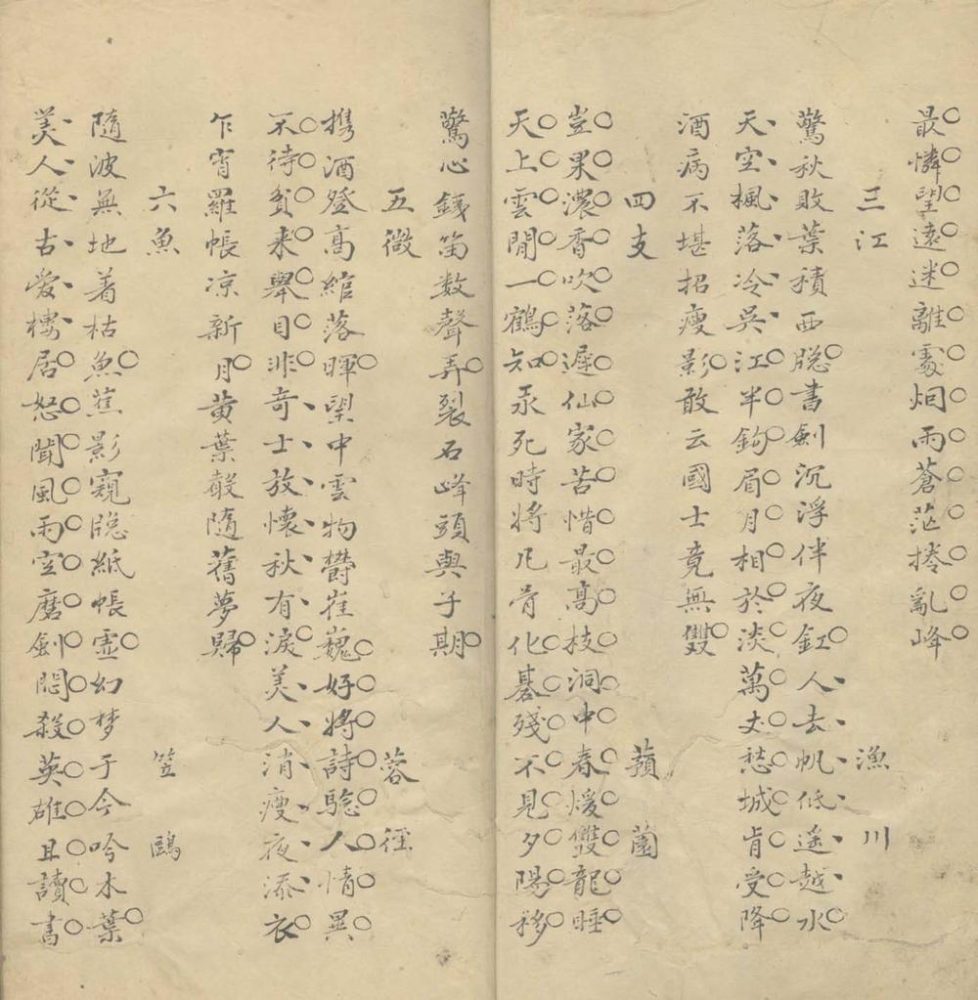 最憐望遠迷離處烟雨蒼茫捲亂峰
三江 漁川
驚秋敗葉積西牕書劍沉浮伴夜釭人去帆低遙越水
天空楓落冷吳江半鉤眉月相於淡萬丈愁城肯受降
酒病不堪招瘦影敢云國士竟無雙
四支 蘋薗
豈果濃香吹落遲仙家苦惜最高枝洞中春煖雙龍睡
天上雲閒一鶴知汞死時將凡骨化碁殘不見夕陽移
驚心鐵笛数聲弄裂石峰頭與子期
五微 蓉徑
携酒登高綰落暉望中雲物鬱崔巍好將詩騐人情異
不待貧来舉目非奇士放懷秋有淚美人消瘦夜添衣
乍宵羅帳凉新月黄葉聲隨舊夢歸
六魚 笠鷗
隨波無地着枯魚蕉影窺牕紙帳虛幻梦于今吟木葉
美人從古愛樓居怒聞風雨空磨劍悶殺英雄且讀書